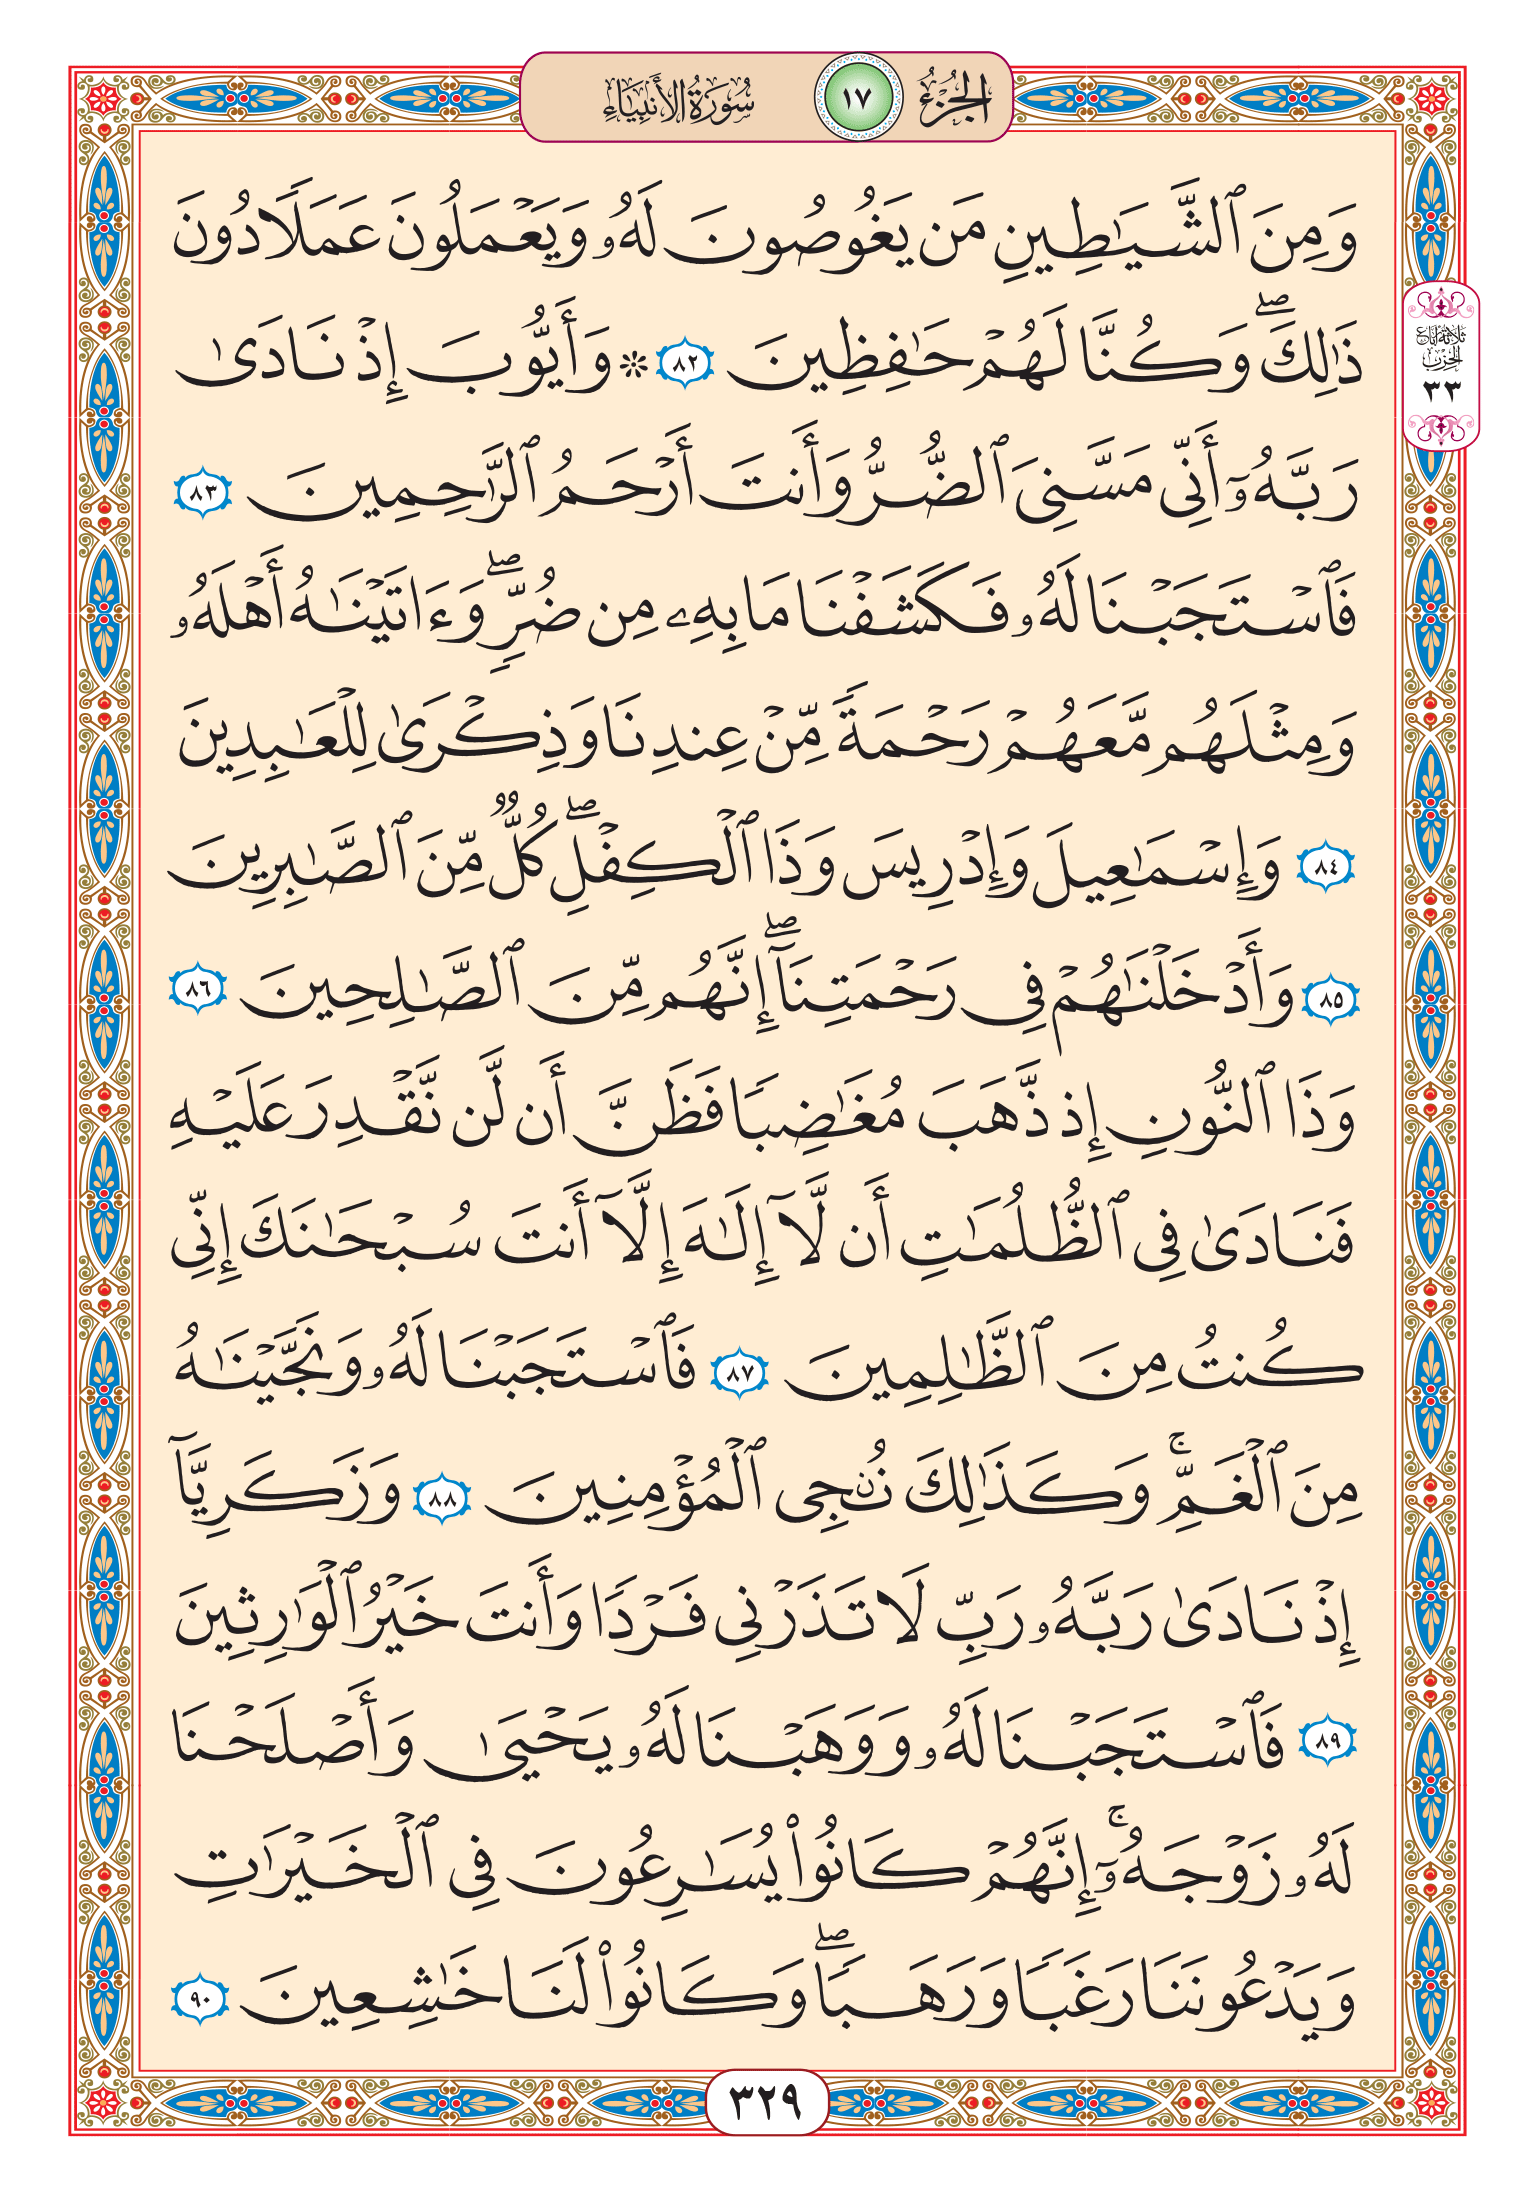 الجُزْءُ ١٧ سُورَةُ الأَنبِيَاءِ
وَمِنَ ٱلشَّيَـٰطِينِ مَن يَغُوصُونَ لَهُۥ وَيَعْمَلُونَ عَمَلًا دُونَ
ذَٰلِكَ ۖ وَكُنَّا لَهُمْ حَـٰفِظِينَ ٨٢ ۞ وَأَيُّوبَ إِذْ نَادَىٰ
رَبَّهُۥٓ أَنِّى مَسَّنِىَ ٱلضُّرُّ وَأَنتَ أَرْحَمُ ٱلرَّٰحِمِينَ ٨٣
فَٱسْتَجَبْنَا لَهُۥ فَكَشَفْنَا مَا بِهِۦ مِن ضُرٍّ ۖ وَءَاتَيْنَـٰهُ أَهْلَهُۥ
وَمِثْلَهُم مَّعَهُمْ رَحْمَةً مِّنْ عِندِنَا وَذِكْرَىٰ لِلْعَـٰبِدِينَ
٨٤ وَإِسْمَـٰعِيلَ وَإِدْرِيسَ وَذَا ٱلْكِفْلِ ۖ كُلٌّ مِّنَ ٱلصَّـٰبِرِينَ
٨٥ وَأَدْخَلْنَـٰهُمْ فِى رَحْمَتِنَآ ۖ إِنَّهُم مِّنَ ٱلصَّـٰلِحِينَ ٨٦
وَذَا ٱلنُّونِ إِذ ذَّهَبَ مُغَـٰضِبًا فَظَنَّ أَن لَّن نَّقْدِرَ عَلَيْهِ
فَنَادَىٰ فِى ٱلظُّلُمَـٰتِ أَن لَّآ إِلَـٰهَ إِلَّآ أَنتَ سُبْحَـٰنَكَ إِنِّى
كُنتُ مِنَ ٱلظَّـٰلِمِينَ ٨٧ فَٱسْتَجَبْنَا لَهُۥ وَنَجَّيْنَـٰهُ
مِنَ ٱلْغَمِّ ۚ وَكَذَٰلِكَ نُـۨجِى ٱلْمُؤْمِنِينَ ٨٨ وَزَكَرِيَّآ
إِذْ نَادَىٰ رَبَّهُۥ رَبِّ لَا تَذَرْنِى فَرْدًا وَأَنتَ خَيْرُ ٱلْوَٰرِثِينَ
٨٩ فَٱسْتَجَبْنَا لَهُۥ وَوَهَبْنَا لَهُۥ يَحْيَىٰ وَأَصْلَحْنَا
لَهُۥ زَوْجَهُۥٓ ۚ إِنَّهُمْ كَانُوا۟ يُسَـٰرِعُونَ فِى ٱلْخَيْرَٰتِ
وَيَدْعُونَنَا رَغَبًا وَرَهَبًا ۖ وَكَانُوا۟ لَنَا خَـٰشِعِينَ ٩٠
ثَلَاثَةُ أَرْبَاعِ
الحِزْبِ
٣٣
٣٢٩